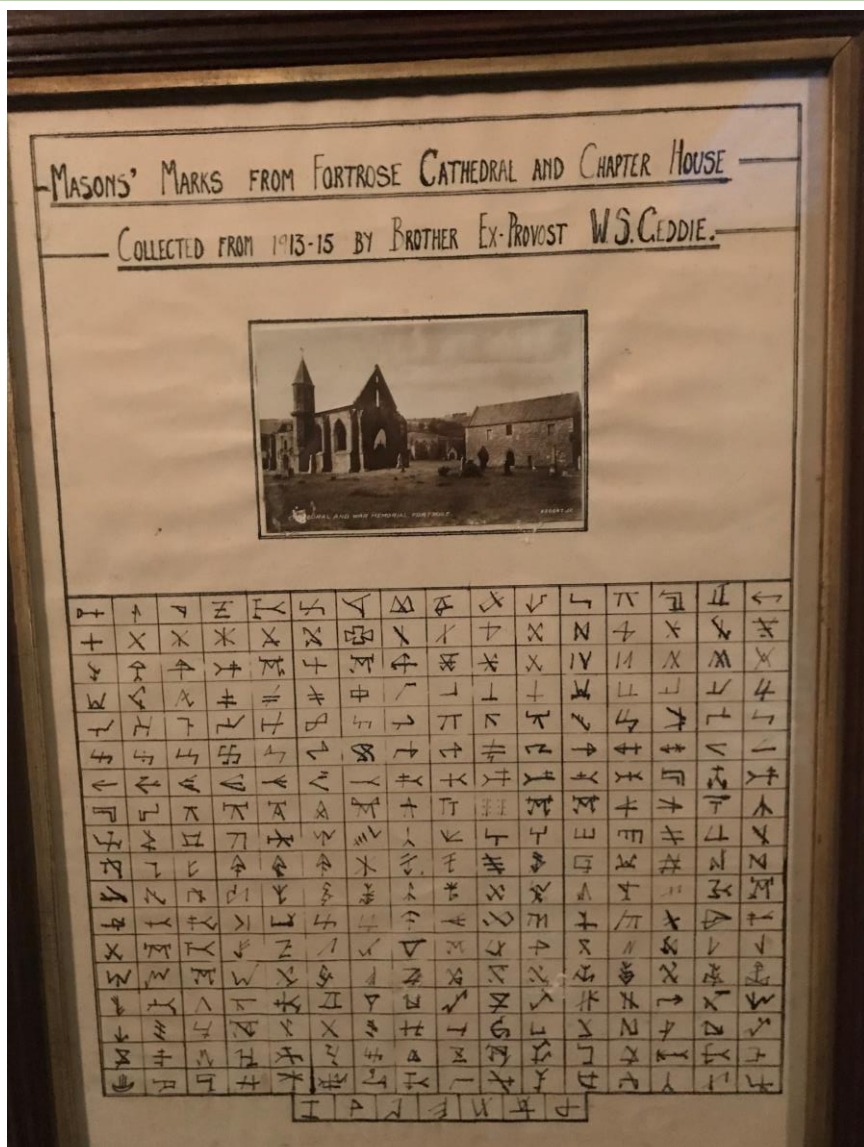 MASONS' MARKS FROM FORTROSE CATHEDRAL AND CHAPTER HOUSE
COLLECTED FROM 1913-15 BY BROTHER EX-PROVOST W.S.GEDDIE.
CATHEDRAL AND WAR MEMORIAL, FORTROSE